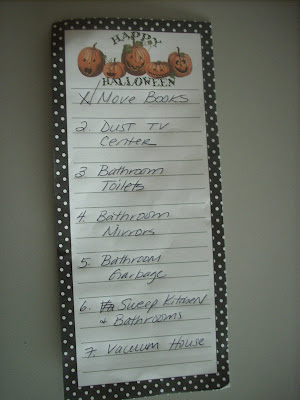 HAPPY
HALLOWEEN
X/ Move Books
2. Dust TV
Center
3 Bathroom
Toilets
4 Bathroom
Mirrors
5. Bathroom
Garbage
6. Sweep Kitchen
& Bathrooms
7. Vacuum House